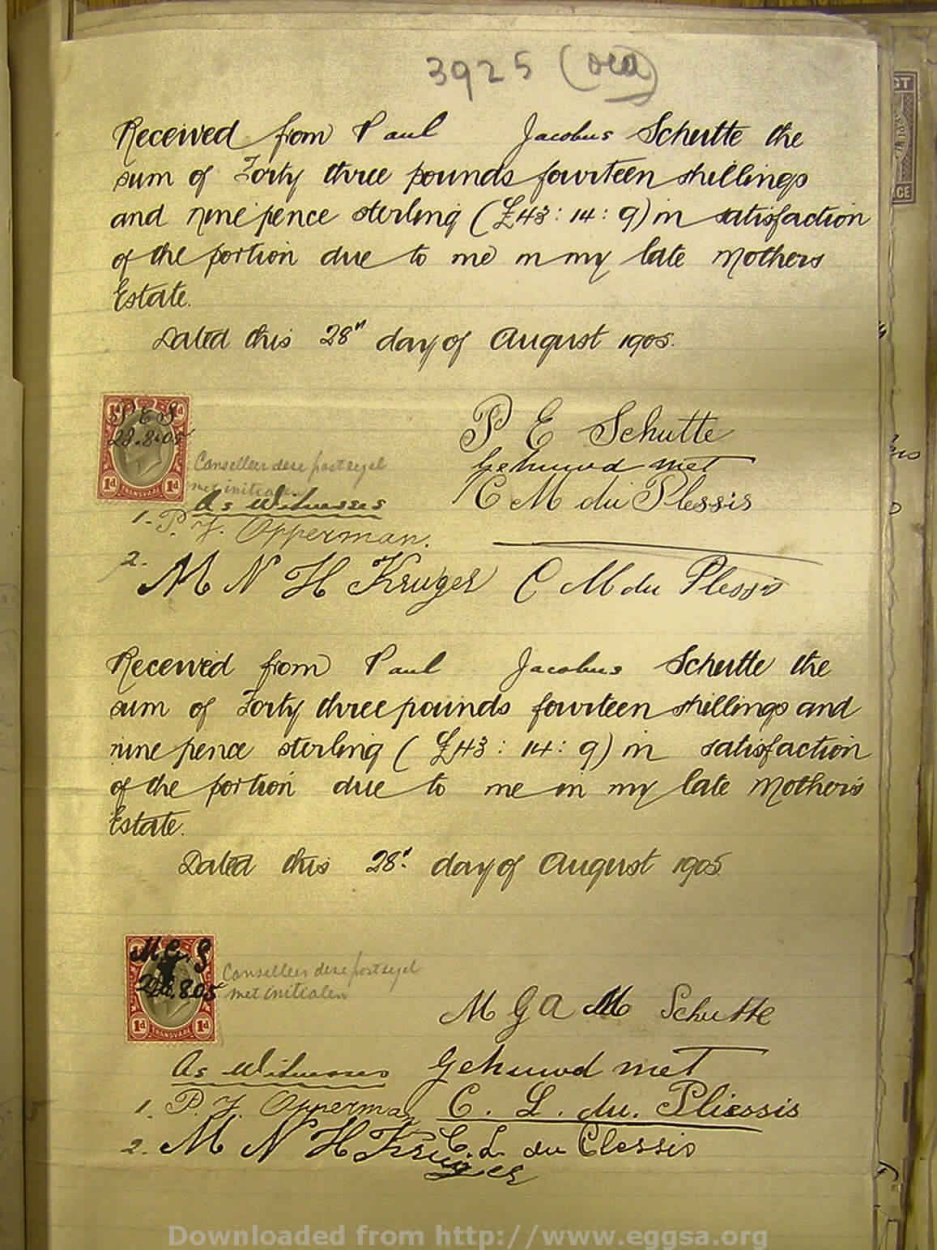 3925
Received from Paul Jacobus Schutte the
sum of Forty three pounds fourteen shillings
and nine pence sterling (£43: 14: 9) in satisfaction
of the portion due to me in my late Mothers
Estate.
Dated this 28th day of August 1905.
P E S
28.8.05
1d 1d
TRANSVAAL
1d 1d
Canselleer dese postzegel
met initialen
P E Schutte
Gehuwd met
C M du Plessis
As Witnesses
1. P. J. Opperman.
2. M N H Kruger
C M du Plessis
Received from Paul Jacobus Schutte the
sum of Forty three pounds fourteen shillings and
nine pence sterling (£43: 14: 9) in satisfaction
of the portion due to me in my late Mother's
Estate.
Dated this 28t day of August 1905
28.8.05
1d 1d
TRANSVAAL
Canselleer dese postzegel
met initialen
M G A M Schutte
Gehuwd met
C. L. du. Pliessis
As Witnesses
1. P. J. Opperman
2. M N H Kruger
C. L du Plessis
Downloaded from http://www.eggsa.org